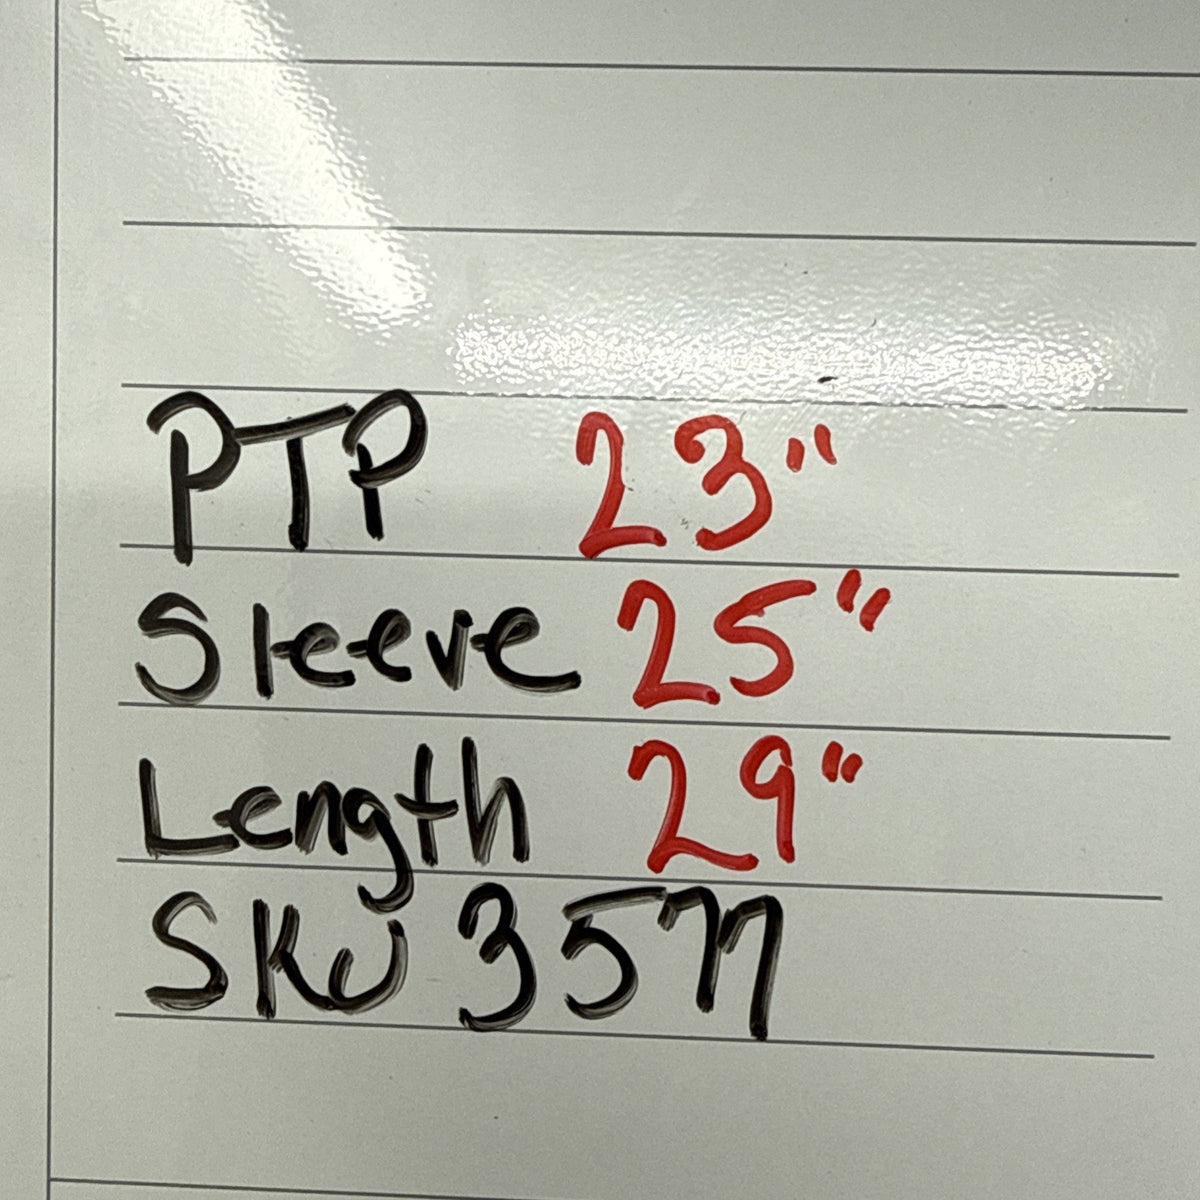 PTP 23"
Sleeve 25"
Length 29"
SKU 3577